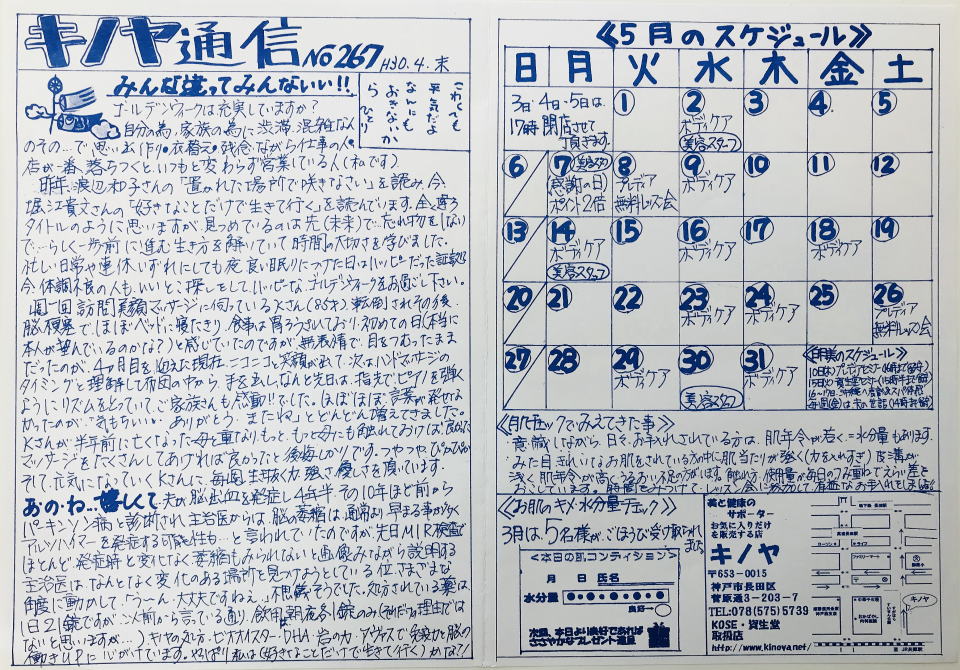 キノヤ通信 No267 H30.4.末
みんな違ってみんないい!!
これでも
平気だよ
なんにも
おきないか
らひとり
ゴールデンウークは充実していますか?
自分の為、家族の為に渋滞、混雑なん
のその…で思い出作り。衣替え。残念ながら仕事の人。
店が一番落ちつくと、いつもと変わらず営業している人(私です)
昨年、渡辺和子さんの「置かれた場所で咲きなさい」を読み、今、
堀江貴文さんの「好きなことだけで生きて行く」を読んでいます。全く違う
タイトルのように思いますが、見つめているのは先(未来)で…忘れ物をしない
で…らしく一歩前に進む生き方を解いていて時間の大切さを学びました。
忙しい日常や連休いずれにしても夜、良い眠りにつけた日はハッピーだった証拠
今、体調不良の人も、いいとこ探しをしてハッピーなゴールデンウィークをお過ごし下さい。
週一回訪問美顔マッサージに伺っているKさん(85才)転倒されその後、
脳梗塞で、ほぼベッドに寝たきり、食事は胃ろうさいており、初めての日(本当に
本人が望んでいるのかな?)と感じていたのですが、無表情で、目をつむったまま
だったのが、4ヶ月目を迎えた現在、ニコニコと笑顔が出て、次はハンドマッサージの
タイミングと理解して布団の中から、手を出し、なんと先日は、指先でピアノを弾く
ようにリズムをとっていて、ご家族さんも感動!!でした。ほぼほぼ言葉が発せな
かったのが、"気もちいい。ありがとう。またね"とどんどん増えてきました。
Kさんが半年前に亡くなった母と重なり、もっと、もっと母にも触れておけば良かった
マッサージをたくさんしてあげれば良かったと後悔しかりです。つやつやぴかぴか
そして元気になっていくKさんに、毎週、生き抜く力、強さ、優しさを頂いています。
あのね…嬉しくて 夫が脳出血を発症し4年半、その10年ほど前から
パーキンソン病と診断され主治医からは、脳の萎縮は、通常より早まる事が多く
アルツハイマーを発症する可能性も…と言われていたのですが、先日MIR検査
ほとんど発症時と変化なく、萎縮もみられないと画像みながら説明する
主治医は、なんとなく変化のある場所を見つけようとしている位、さまざまな
角度に動かして、「う〜ん。大丈夫ですねぇ」不思議そうでした。処方されている薬は
1日21錠ですが、以前から言っている通り、飲用朝夜各1錠のみ(それだけが理由では
ないと思いますが…)キヤの処方、ゼオオイスター、DHA、岩の力、アヴァスで免疫力と脳の
働きUPに心がけています。やっぱり私は(好きなことだけで生きて行く)かな?!
≪5月のスケジュール≫
日 月 火 水 木 金 土
3日・4日・5日は、
17時閉店させて
頂きます。
1
2 ボディケア 美容スタッフ
3
4
5
6
7 美容スタッフ
(感謝の日)
ポイント2倍
8 プレディア
無料レッスン会
9 ボディケア
10
11
12
13
14 ボディケア 美容スタッフ
15
16 ボディケア
17
18 ボディケア
19
20
21
22
23 ボディケア
24 ボディケア
25
26 プレディア
無料レッスン会
27
28
29 ボディケア
30 美容スタッフ
31 ボディケア
≪肌チェックでみえてきた事≫
意識しながら日々、お手入れされている方は、肌年令が若く=水分量もあります。
みた目、きれいなお肌をされている方の中に、肌当たりが強く(力を入れすぎ)
≪お肌のキメ・水分量チェック≫
3月は、5名様が、ごほうび受け取られました
<本日の肌コンディション>
月 日 氏名
水分量
良好
次回、本日より良好であれば
ささやかなプレゼント進呈
美と健康の
サポーター
お気に入りだけ
を販売する店
キノヤ
〒653-0015
神戸市長田区
菅原通3-203-7
TEL:078(575)5739
KOSE・資生堂
取扱店
http://www.kinoya.net/
ローソン
ライフ
ファミリーマート
キノヤ